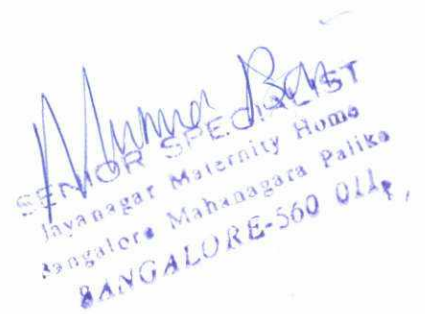 SENIOR SPECIALIST
Jayanagar Maternity Home
Bangalore Mahanagara Palike
BANGALORE-560 011,